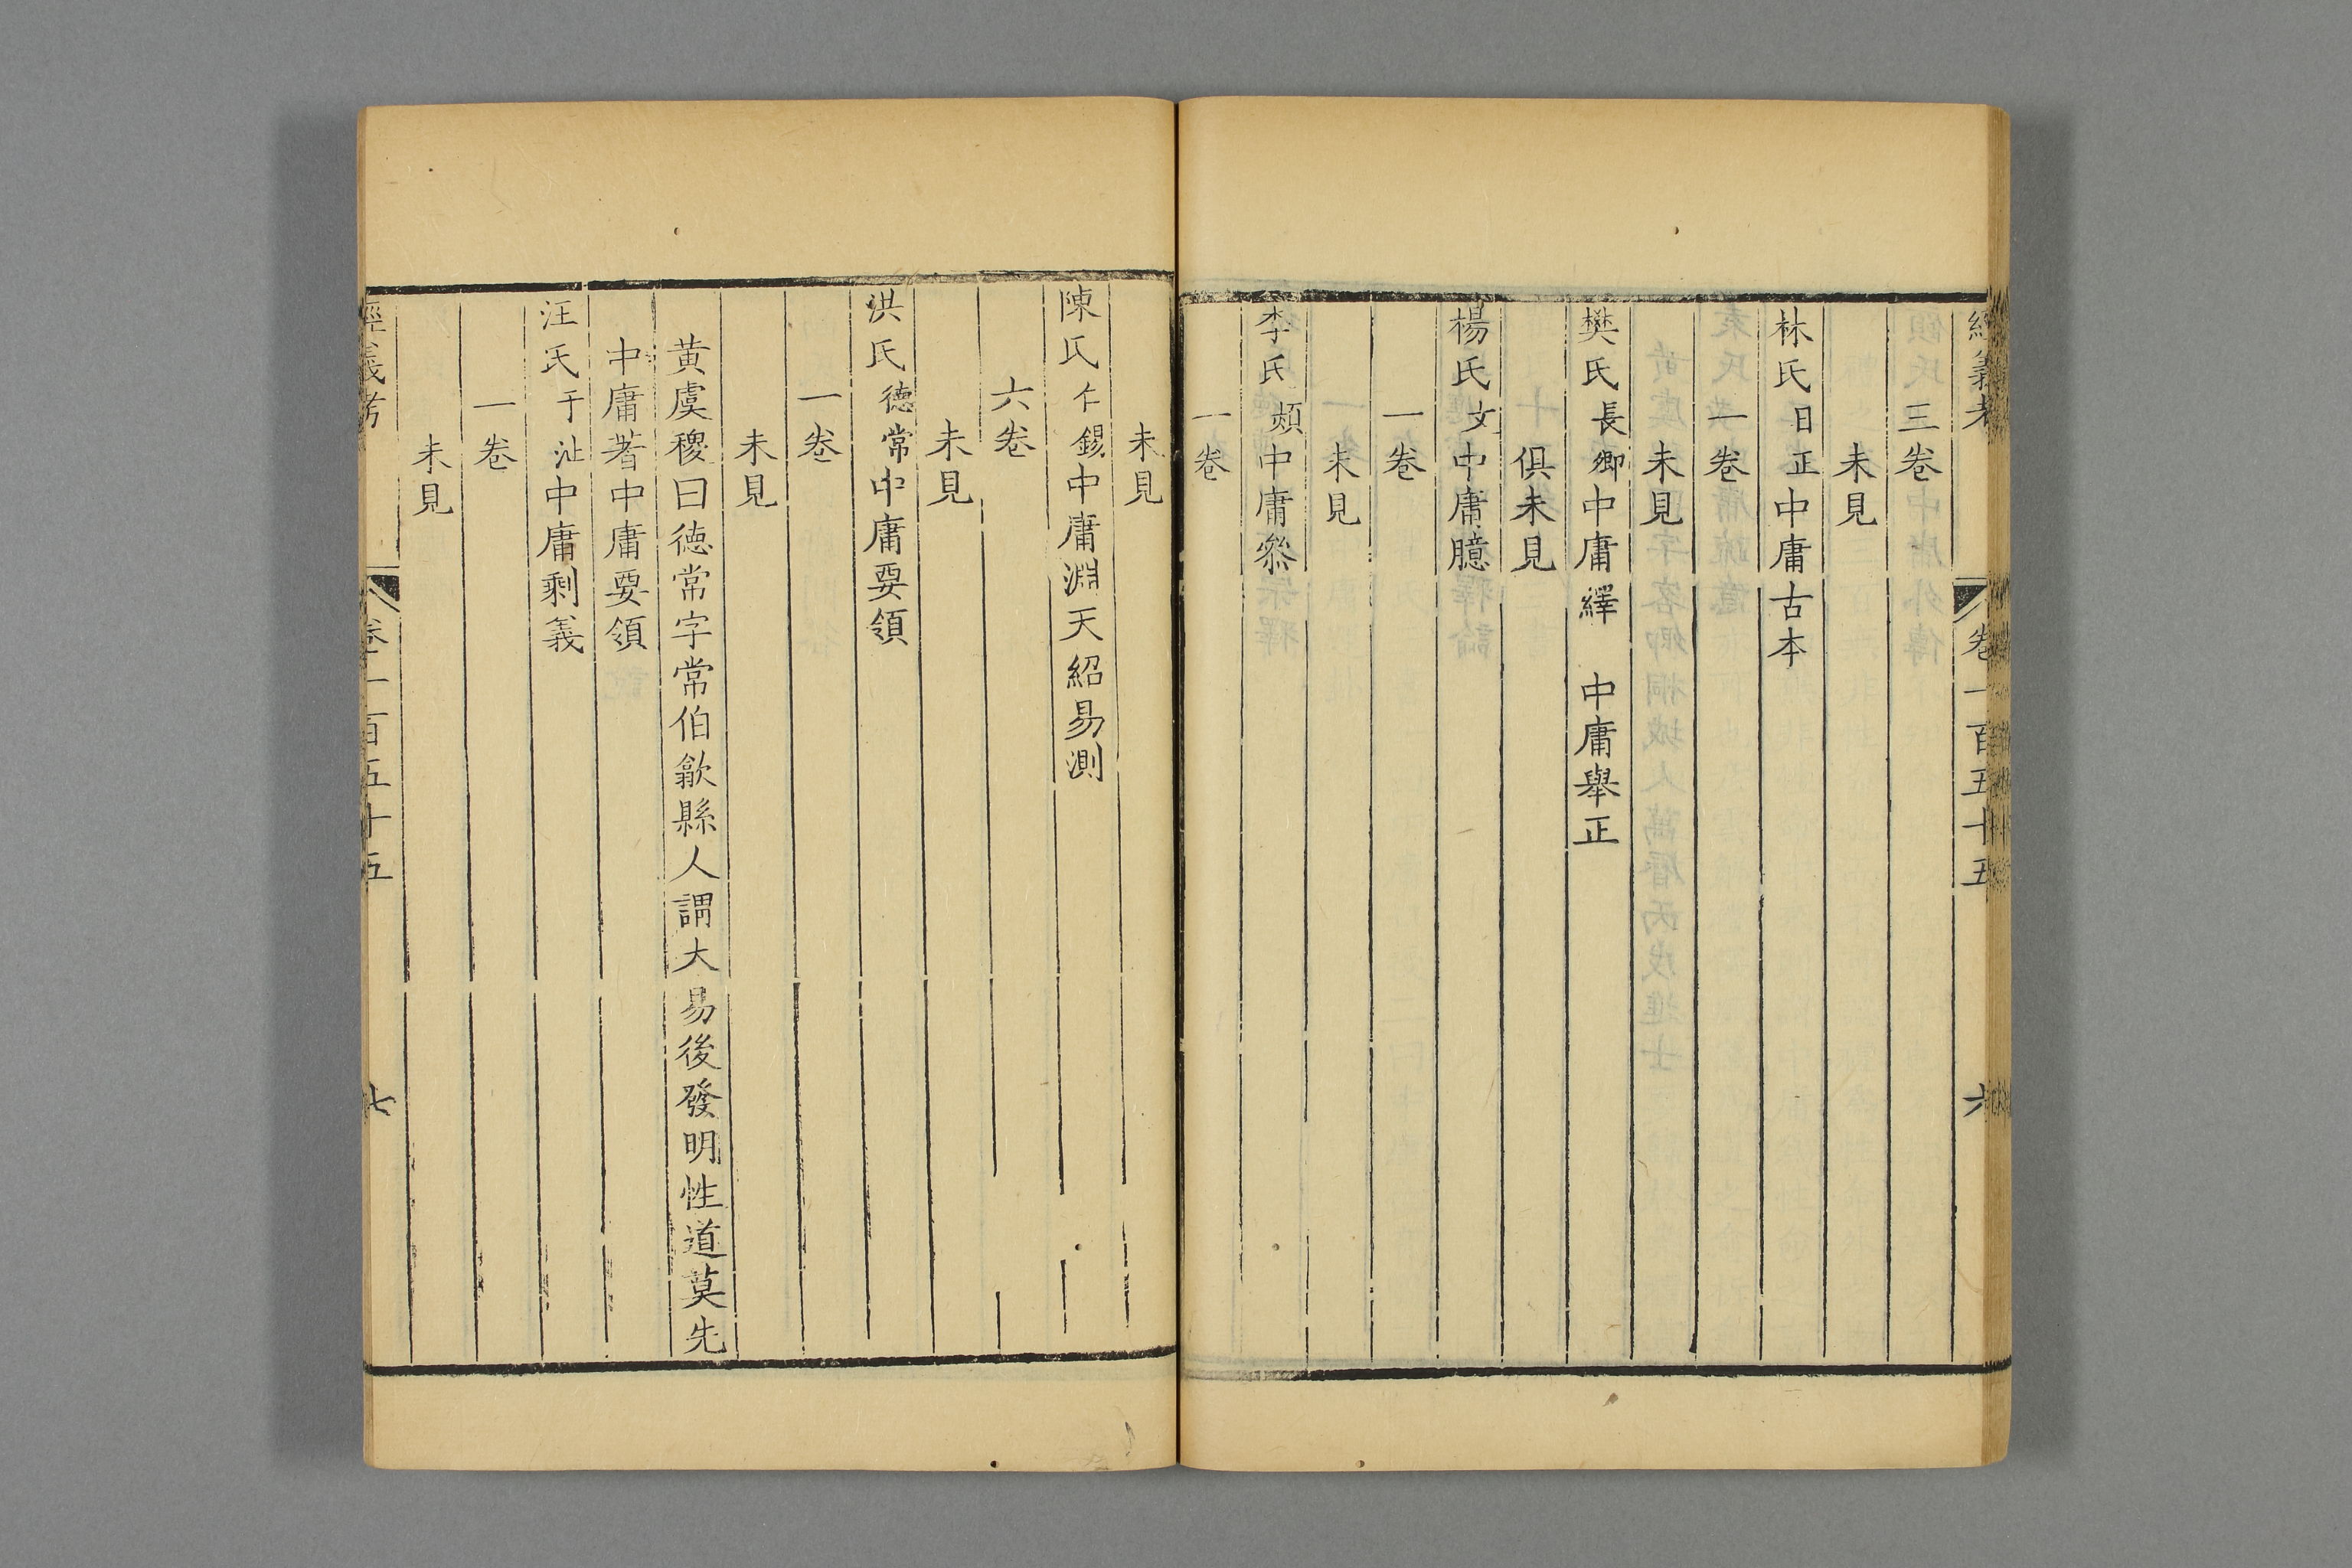 經義考 卷一百五十五 六
三卷
未見
林氏日正中庸古本
一卷
未見
樊氏長卿中庸繹 中庸舉正
俱未見
楊氏文中庸臆
一卷
未見
李氏頻中庸叅
一卷
未見
陳氏仁錫中庸淵天紹易測
六卷
未見
洪氏德常中庸要領
一卷
未見
黃虞稷曰德常字常伯歙縣人謂大易後發明性道莫先
中庸著中庸要領
汪氏于沚中庸剩義
一卷
未見
經義考 卷一百五十五 七